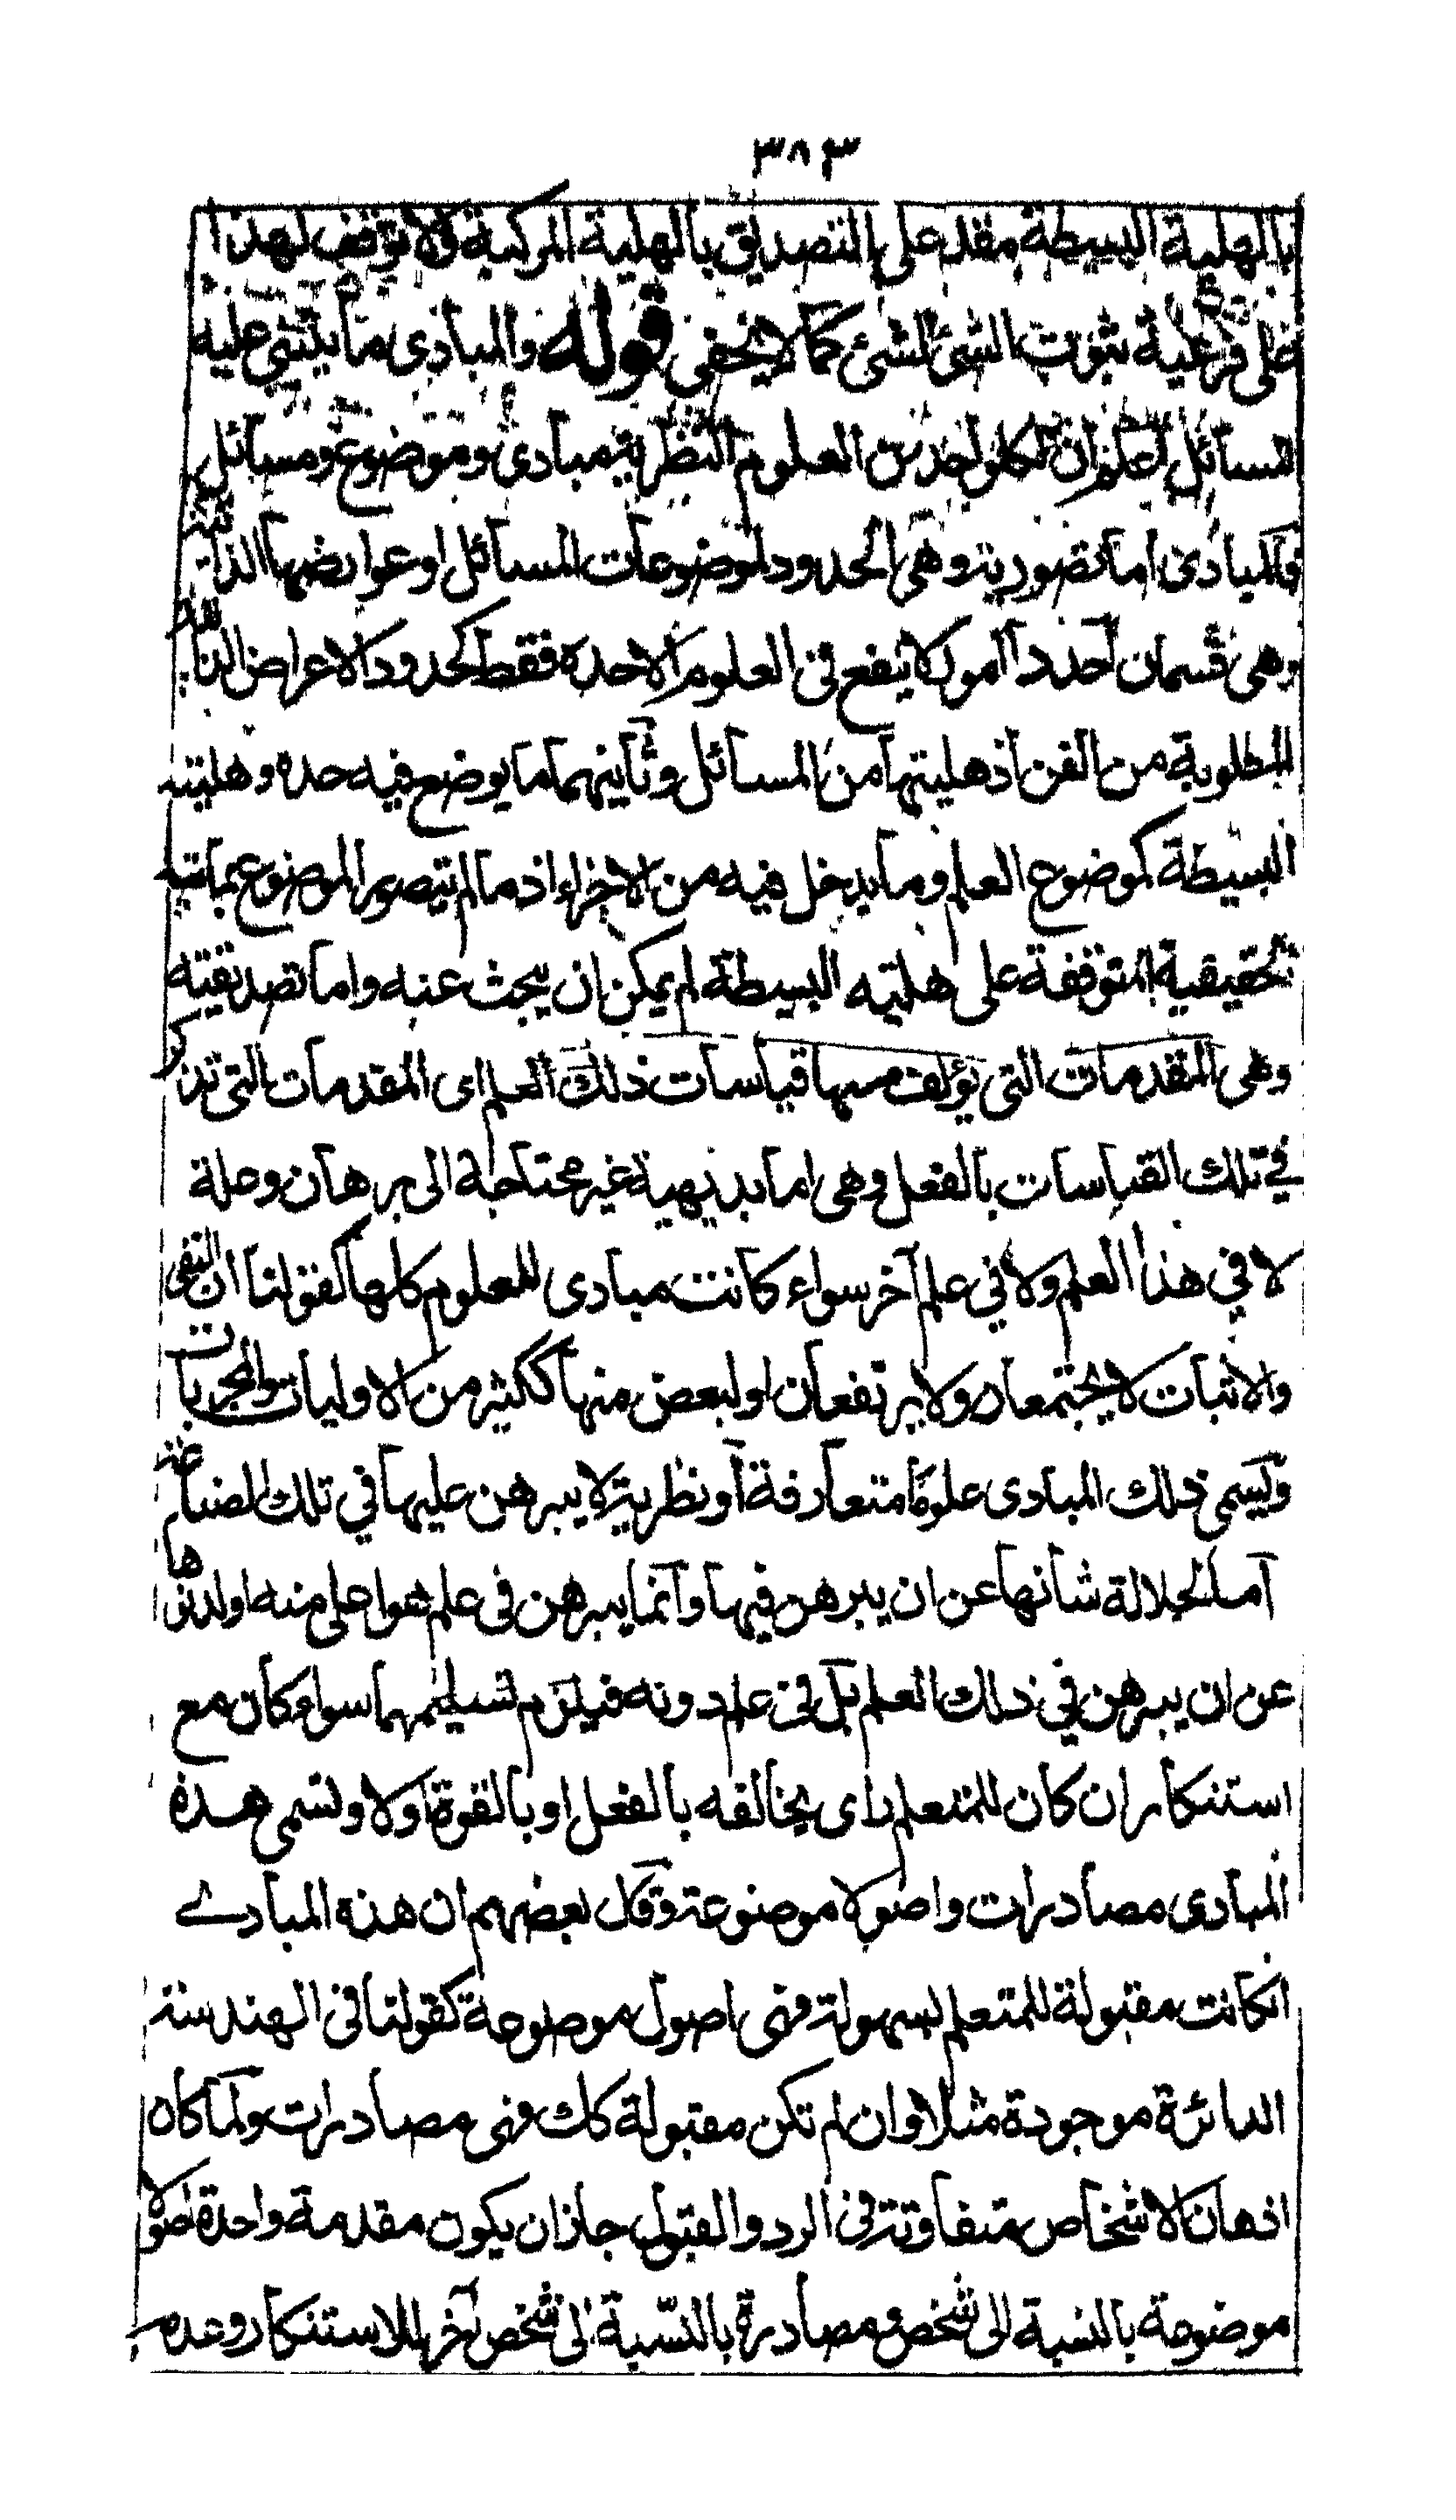 ٣٨٣
بالهلية البسيطة مقدم على التصديق بالهلية المركبة ولا توقف لهذا
على فرعية ثبوت الشئ للشئ كما لا يخفى قوله والمبادى ما يبتنى عليه
المسائل اعلم ان لكل واحد من العلوم النظرية مبادى وموضوع ومسائل
فالمبادى اما تصورية وهى الحدود لموضوعات المسائل او عوارضها الذاتية
وهى قسمان احدهما امور لا ينفع فى العلوم الا حده فقط كحدود الاعراض الذاتية
المطلوبة من الفن اذ هليتها من المسائل وثانيهما ما يوضع فيه حده وهليته
البسيطة كموضوع العلم وما يدخل فيه من الاجزاء اذ ما لم يتصور الموضوع بماهيته
الحقيقية المتوقفة على هليته البسيطة لم يمكن ان يبحث عنه واما تصديقية
وهى المقدمات التى يؤلف منها قياسات ذلك العلم اى المقدمات التى تذكر
في تلك القياسات بالفعل وهى اما بديهية غير محتاجة الى برهان وحلة
لا في هذا العلم ولا في علم آخر سواء كانت مبادى للعلوم كلها كقولنا ان النفى
والاثبات لا يجتمعان ولا يرتفعان او لبعض منها ككثير من الاوليات والمجربات
وليسمى ذلك المبادى علومًا متعارفة أو نظرية لا يبرهن عليها في تلك الصناعة
اما لجلالة شانها عن ان يبرهن فيها وانما يبرهن فى علم هو اعلى منه او لدنوها
عن ان يبرهن في ذلك العلم بل فى علم دونه فيلزم تسليمها سواء كان مع
استنكار ان كان للمتعلم راى يخالفه بالفعل او بالقوة او لا وتسمى هذه
المبادى مصادرات واصولا موضوعة وقال بعضهم ان هذه المبادے
انكانت مقبولة للمتعلم بسهولة فهى اصول موضوعة كقولنا فى الهندسة
الدائرة موجودة مثلا وان لم تكن مقبولة كك فهى مصادرات ولما كان
اذهان الاشخاص متفاوتة فى الرد والقبول جاز ان يكون مقدمة واحدة اصولا
موضوعة بالنسبة الى شخص ومصادرة بالنّسبة الى شخص آخر للاستنكار وعدمه